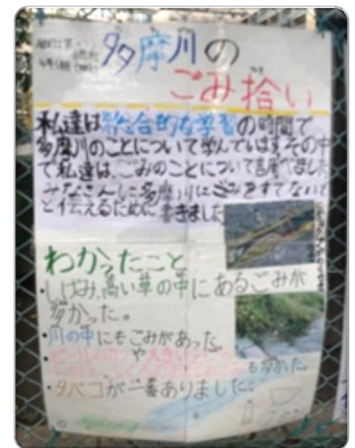 多摩川の
ごみ拾い
私達は総合的な学習の時間で
多摩川のことについて学んでいます。その中
で私達は、ごみのことについて調べました
みなさんに多摩川にごみをすてないで
と伝えるために書きました
わかったこと
・しげみ、高い草の中にあるごみが
多かった。
・川の中にもごみがあった。
・ビールのカンや大きい
も多かった。
・タバコが一番ありました。